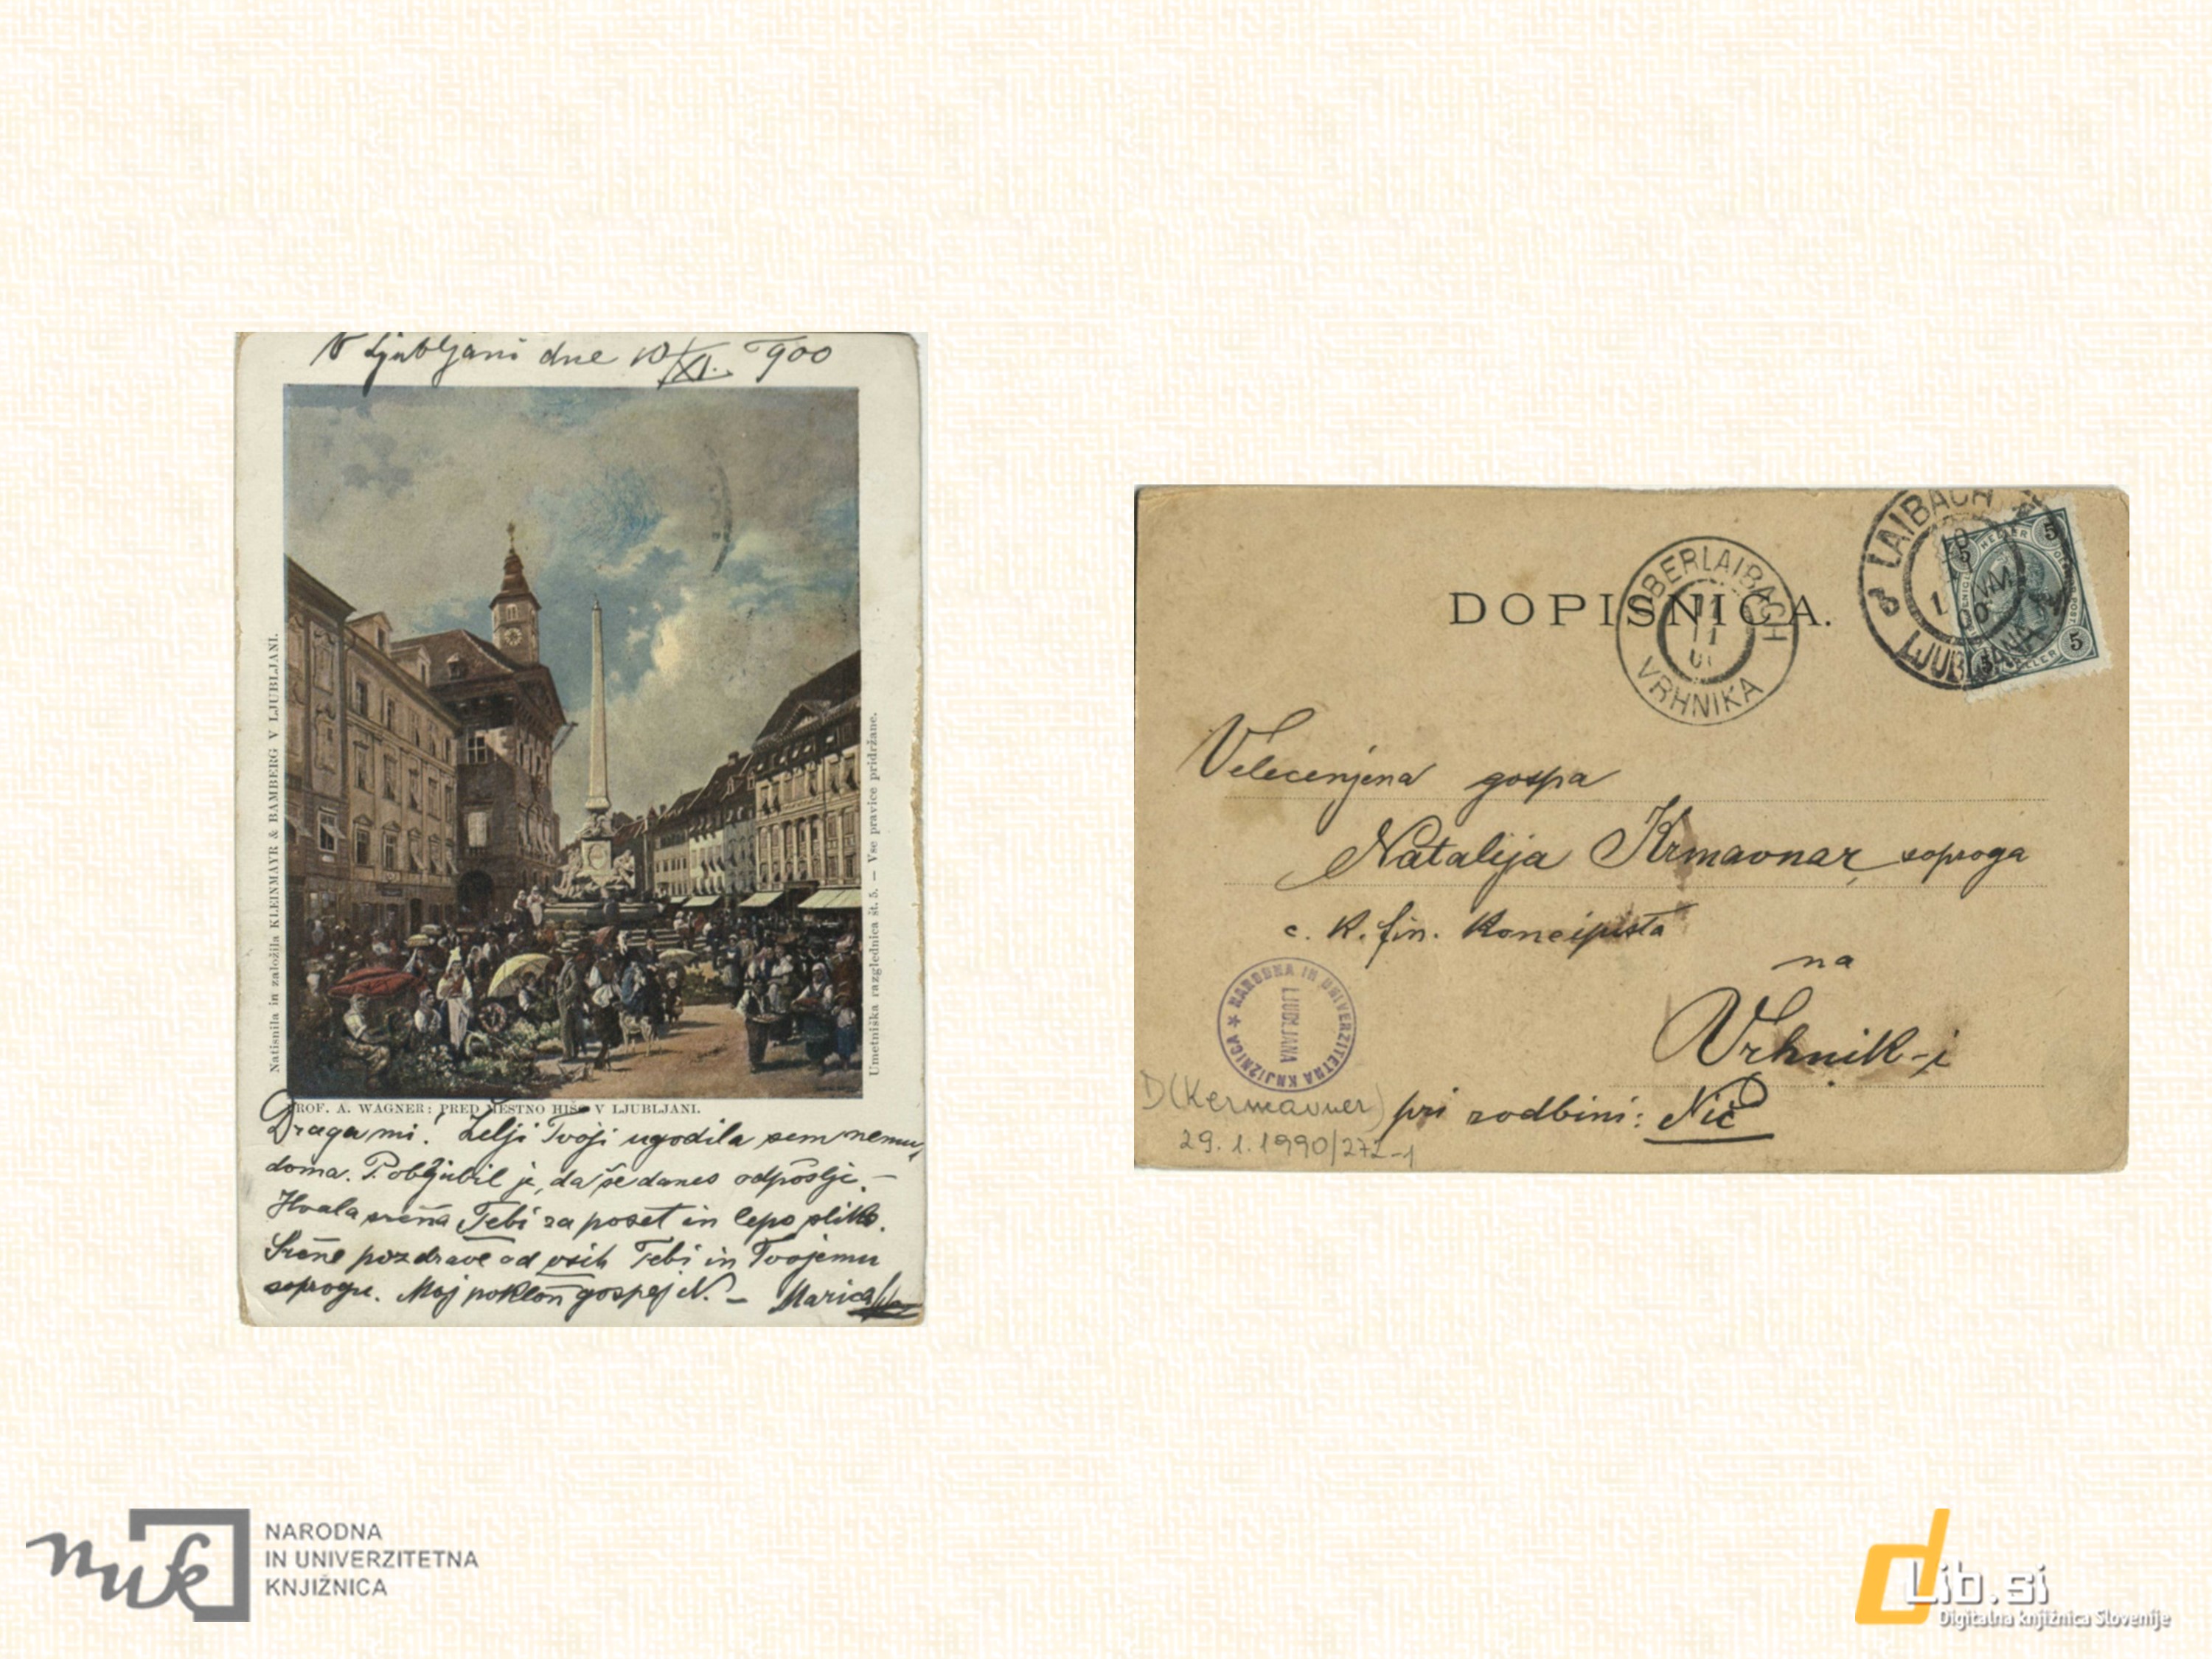 V Ljubljani dne 10/XI. 1900
Natisnila in založila KLEINMAYR & BAMBERG V LJUBLJANI.
Umetniška razglednica št. 5. — Vse pravice pridržane.
PROF. A. WAGNER: PRED MESTNO HIŠO V LJUBLJANI.
Draga mi! Želji Tvoji ugodila sem nemu,
doma. P. obljubil je, da še danes odpošlje. —
Hvala srčna Tebi za poset in lepo sliko.
Srčne pozdrave od vsih Tebi in Tvojemu
soprogu. Moj poklon gospej N. — Marica
DOPISNICA.
OBERLAIBACH
11
11
VRHNIKA
LAIBACH
LJUBLJANA
5 HELLER 5
5 HELLER 5
Velecenjena gospa
Natalija Krmavnar, soproga
c. k. fin. koncipista
na
Vrhnik-i
pri rodbini: Nič
NARODNA IN UNIVERZITETNA KNJIŽNICA
LJUBLJANA
D(Kermavner)
29.1.1990/272-1
nuk
NARODNA
IN UNIVERZITETNA
KNJIŽNICA
dLib.si
Digitalna knjižnica Slovenije